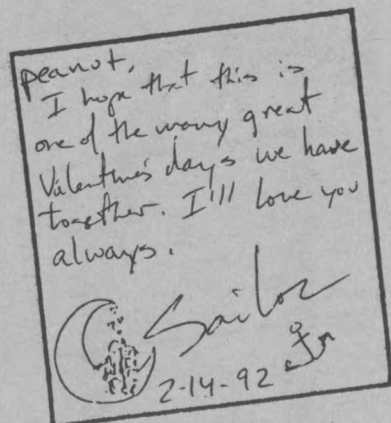 Peanut,
I hope that this is
one of the many great
Valentine's days we have
together. I'll love you
always.
Sailor
2-14-92